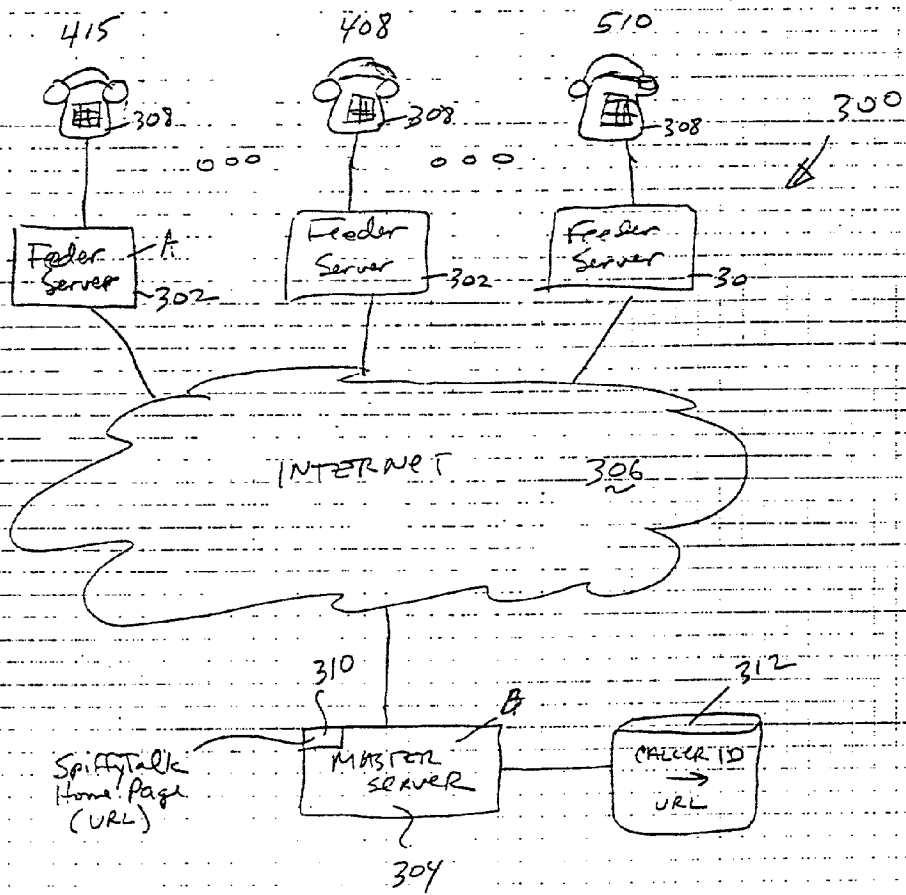 415 408 510
308 308 308
300
Feeder
Server
A
302
Feeder
Server
302
Feeder
Server
30
INTERNET 306
310
SpiffyTalk
Home Page
(URL)
MASTER
SERVER
B
304
312
CALLER ID
→
URL